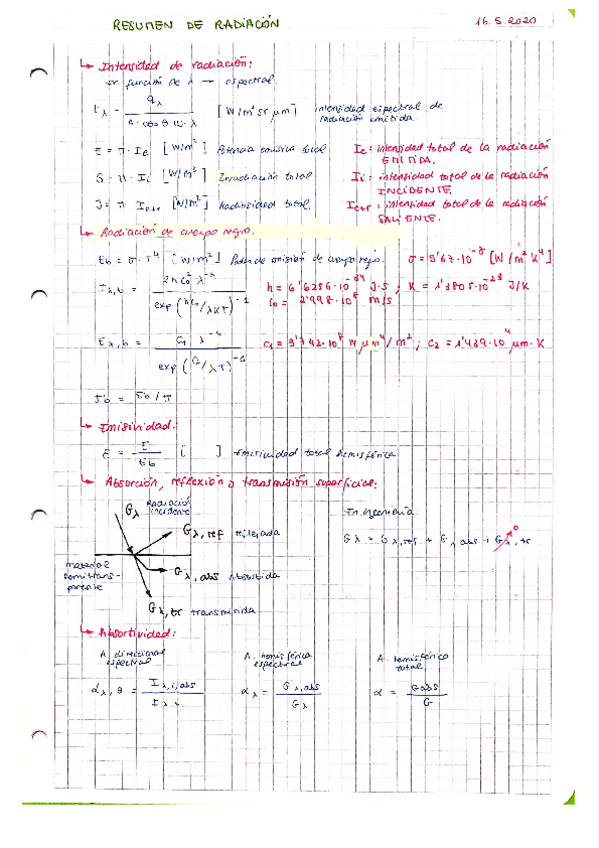 RESUMEN DE RADIACIÓN
16.5.2020
↳ Intensidad de radiación:
en función de λ → espectral.
[W/m² sr μm] intensidad espectral de radiación emitida
E = π · Ie [W/m²] Potencia emisiva total
Ie: intensidad total de la radiación EMITIDA.
G = π · Ii [W/m²] Irradiación total
Ii: intensidad total de la radiación INCIDENTE.
J = π Ie+r [W/m²] Radiosidad total.
Ie+r: intensidad total de la radiación SALIENTE.
↳ Radiación de cuerpo negro.
Eb = σ · T⁴ [W/m²] Poder de emisión de cuerpo negro.
σ = 5'67·10⁻⁸ [W/m² K⁴]
Iλ,b = 2hc₀² λ⁻⁵ / exp(hc₀/λKT)⁻¹
h = 6'6256·10⁻³⁴ J·S ; K = 1'3805·10⁻²³ J/K
c₀ = 2'998·10⁸ m/s
Eλ,b = C₁ λ⁻⁵ / exp(C₂/λT)⁻¹
C₁ = 3'742·10⁸ W μm⁴/m² ; C₂ = 1'439·10⁴ μm·K
Ib = Eb/π
↳ Emisividad:
ε = E / Eb [ ] emisividad total hemisférica
↳ Absorción, reflexión o transmisión superficial:
Gλ Radiación incidente
En ingeniería
Gλ,ref reflejada
Gλ = Gλ,ref + Gλ,abs + Gλ,tr 0
material semitrans-
parente
Gλ,abs absorbida
Gλ,tr transmitida
↳ Absortividad:
A. direccional espectral
A. hemisférica espectral
A. hemisférica total
αλ,θ = Iλ,i,abs / Iλ,i
αλ = Gλ,abs / Gλ
α = Gabs / G